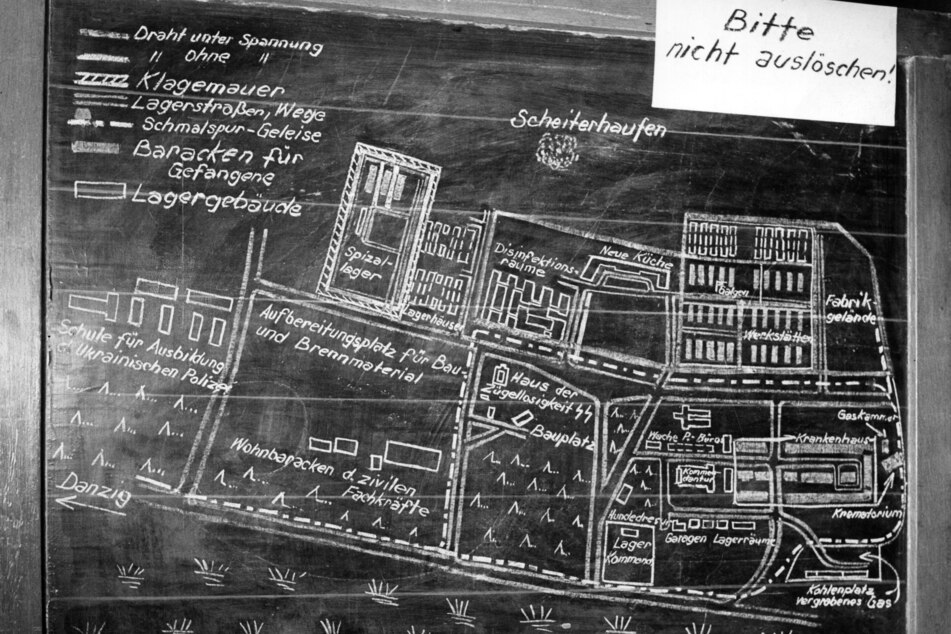 Bitte
nicht auslöschen!
Draht unter Spannung
" ohne "
Klagemauer
Lagerstraßen, Wege
Schmalspur-Geleise
Baracken für
Gefangene
Lagergebäude
Scheiterhaufen
Spizal-
lager
Lagerhäuser
Disinfektions-
räume
Neue Küche
Galgen
Werkstätten
Fabrik-
gelände
Schule für Ausbildung
d. Ukrainischen Polizei
Aufbereitungsplatz für Bau-
und Brennmaterial
Haus der
Zügellosigkeit SS
Bauplatz
Wohnbaracken d. zivilen
Fachkräfte
Danzig
Wache P.-Büro
Komman
dantur
Krankenhaus
Gaskammer
Krematorium
Hundedress
Garagen Lagerräume
Lager
Kommand
Kohlenplatz
vergrabenes Gas